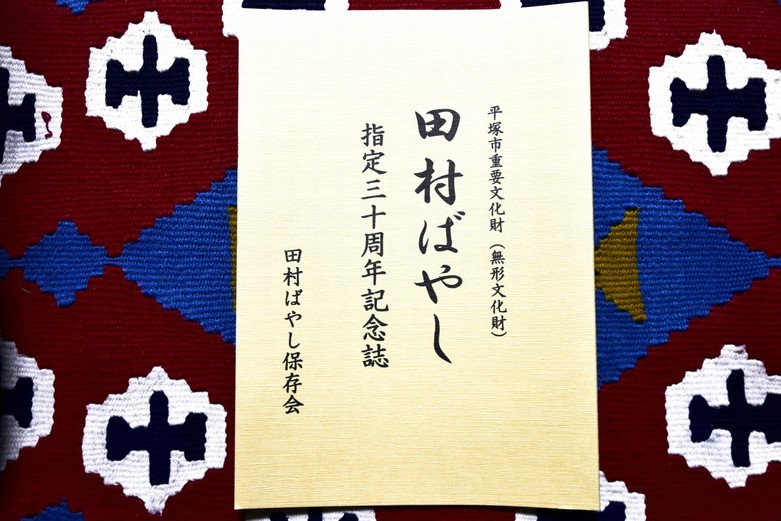 平塚市重要文化財(無形文化財)
田村ばやし
指定三十周年記念誌
田村ばやし保存会